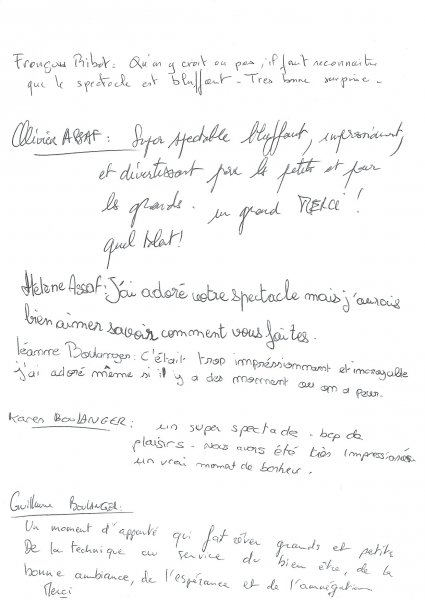 François Ribot: Qu'on y croit ou pas, il faut reconnaitre
que le spectacle est bluffant - Très bonne surprise -
Olivier ASSAF: Super spectacle bluffant, impressionant,
et divertissant pour les petits et pour
les grands. un grand MERCI!
quel talent!
Hélène Assaf: J'ai adoré votre spectacle mais j'aurais
bien aimer savoir comment vous faites.
Léanne Boulanger: C'était trop impréssionnant et incroyable
j'ai adoré même si il y a des moment ou on a peur.
Karen BOULANGER: un super spectacle. bcp de
plaisirs - Nous avons été très impressionés
un vrai moment de bonheur.
Guillaume BOULANGER:
Un moment d'apparté qui fait rêver grands et petits
De la technique au service du bien être, de la
bonne ambiance, de l'espérance et de l'
Merci